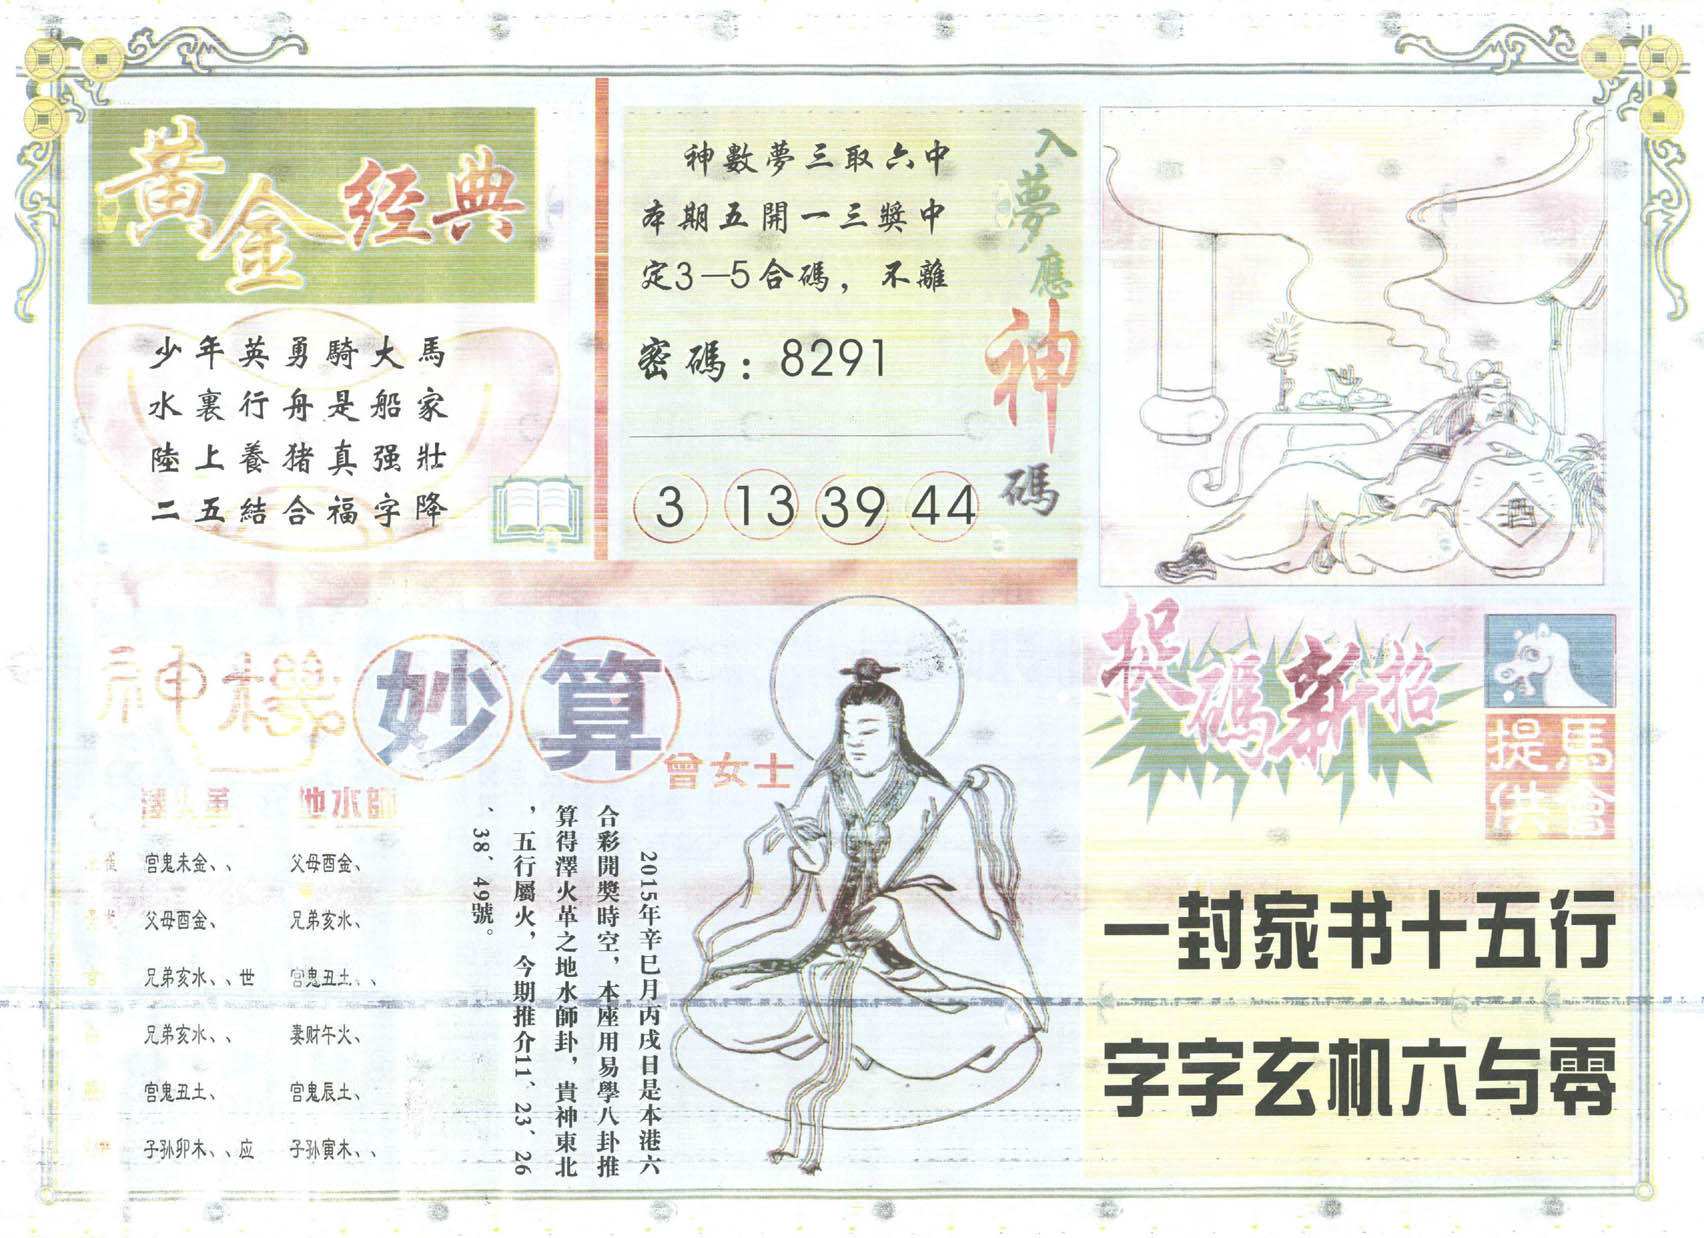 黃金经典
少年英勇騎大馬
水裏行舟是船家
陸上養猪真强壯
二五結合福字降
神數夢三取六中
本期五開一三獎中
定3—5合碼，不離
密碼：8291
3 13 39 44
入夢應神碼
酒
神機妙算
曾女士
澤火革 地水師
官鬼未金、、 父母酉金、
父母酉金、 兄弟亥水、
兄弟亥水、、世 官鬼丑土、、
兄弟亥水、、 妻财午火、
官鬼丑土、 官鬼辰土、
子孙卯木、、应 子孙寅木、、
2015年辛巳月丙戌日是本港六
合彩開獎時空，本座用易學八卦推
算得澤火革之地水師卦，貴神東北
，五行屬火，今期推介11、23、26
、38、49號。
捉碼新招
馬會
提供
一封家书十五行
字字玄机六与零